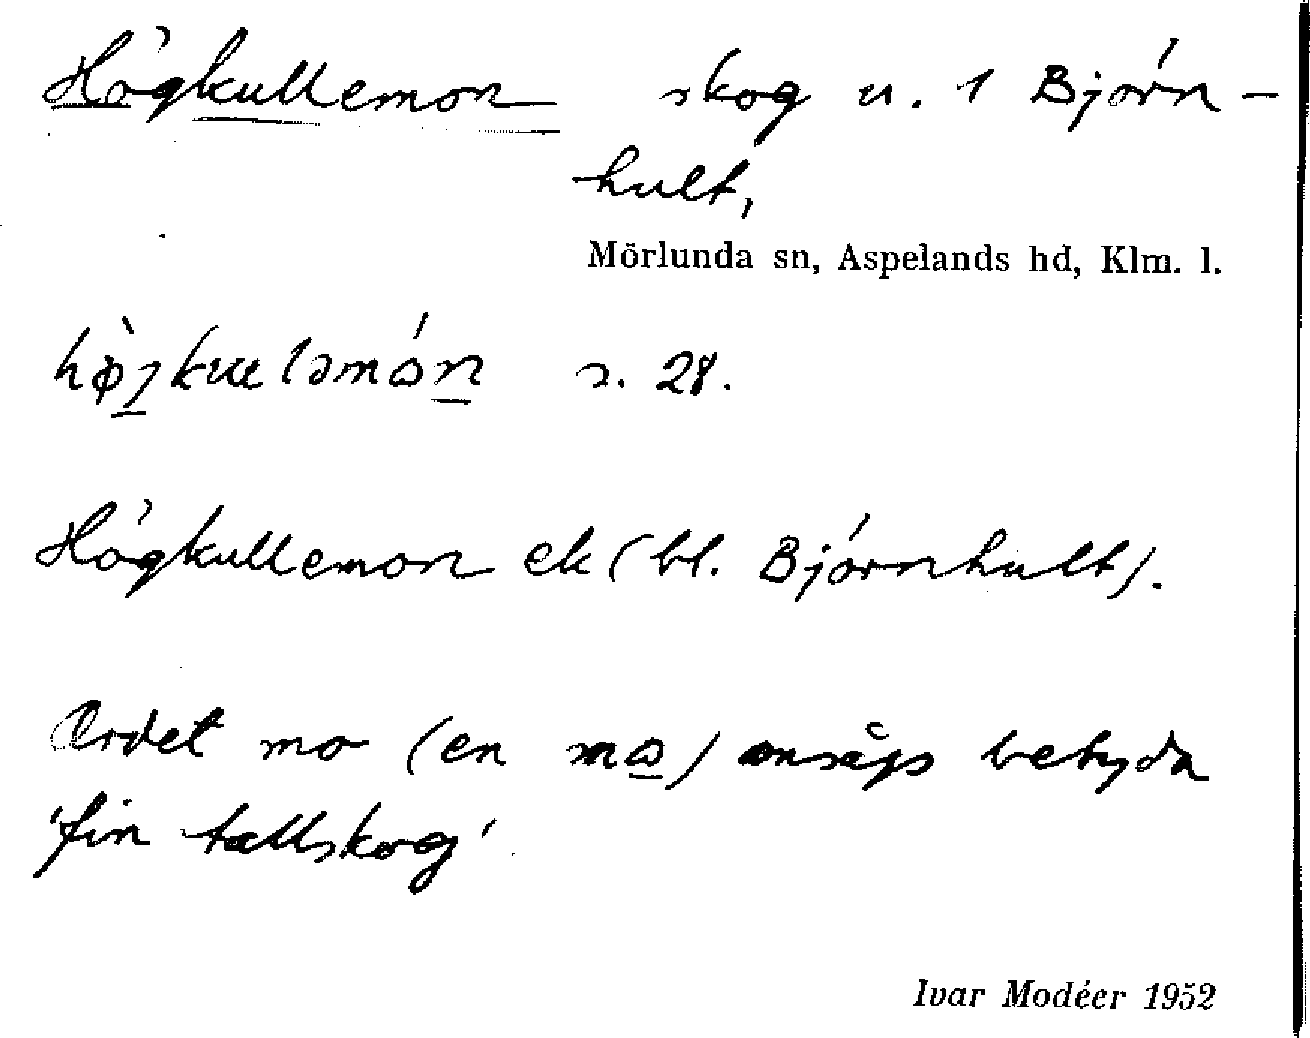 Högkullemon skog u. 1 Björn-
hult,
Mörlunda sn, Aspelands hd, Klm. l.
s. 28.
Högkullemon ek (bl. Björnhult).
Ordet mo (en mo) ansågs betyda
'fin tallskog'
Ivar Modéer 1952